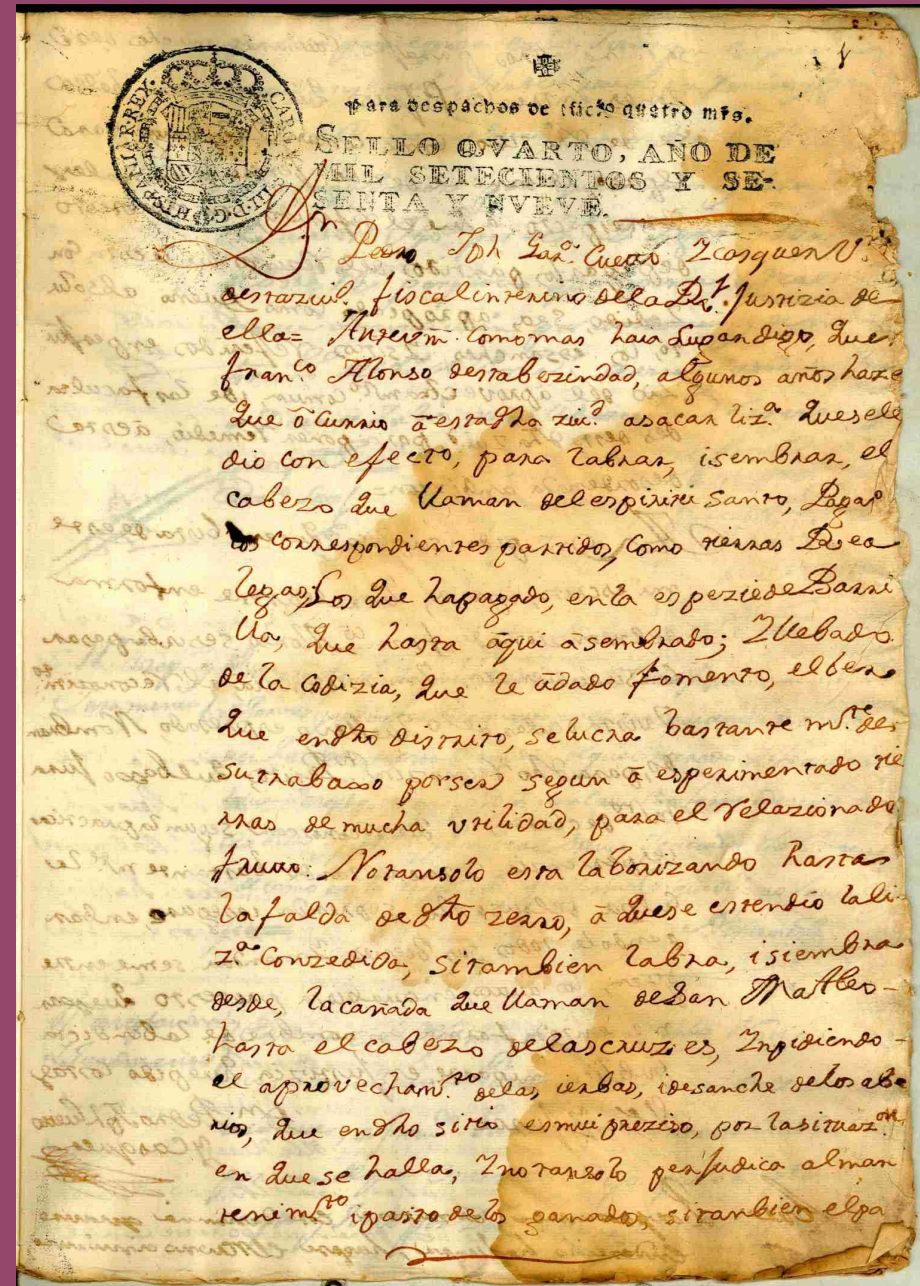 1
CAROLUS III D G HISPANIAR REX
Para despachos de oficio quatro mrs.
SELLO QVARTO, AÑO DE
MIL SETECIENTOS Y SE-
SENTA Y NVEVE.
Dn Pedro Jph Garª. Cuero Zcasques Vº
destaziud. fiscal interino dela Rl. Justizia de
ella= Antevm. como mas haia Lugar digo, que
franco Alonso desta bezindad, algunos años haze
que ô currio â esta dha ziud. asacar lizª. que sele
dio con efecto, para labrar, isembrar, el
cabezo que llaman del espiritu Santo, Pagdº
los correspondientes partidos, como tierras Rea
legas; Los que hapagado, enla espeziede Barri
lla, que hasta âqui âsembrado; Zllebado
de la Codizia, que le âdado fomento, el ber
que endho distrito, selucra bastante mte. de
sutrabaxo porser segun â esperimentado tie
rras de mucha vtilidad, para el relazionado
fruto. Notansolo esta laborizando hasta
la falda de dho zerro, â quese estendio la li-
zª Conzedida, sitambien labra, isiembra
desde, la cañada que llaman de San Matheo-
hasta el cabezo delascruzes, Ynpidiendo-
el aprovechamto. delas ierbas, idesanche delos abe
rios, que endho sitio esmui prezizo, por la situazon
en que se halla, Ynotansolo perjudica alman
tenimto ipasto de los ganados, sitanbien elpa